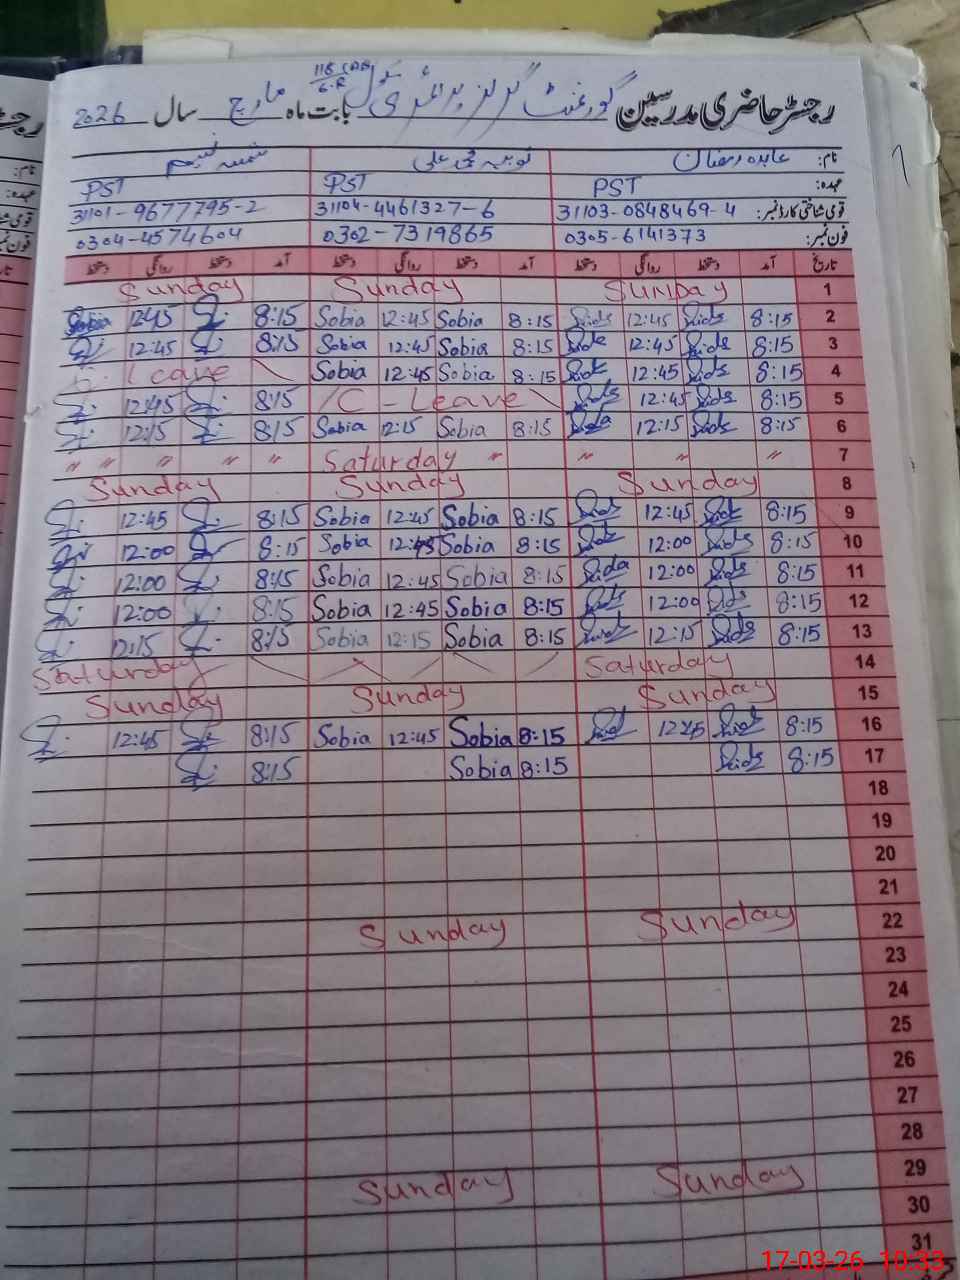 رجسٹر حاضری مدرسین گورنمنٹ گرلز پرائمری سکول 118 6.R بابت ماہ مارچ سال 2026
نام: عابدہ رمضان ثوبیہ محمد علی ثمینہ نسیم
عہدہ: PST PST PST
قومی شناختی کارڈ نمبر: 31103-0848469-4 31104-4461327-6 31101-9677795-2
فون نمبر: 0305-6141373 0302-7319865 0304-4574604
تاریخ آمد دستخط روانگی دستخط آمد دستخط روانگی دستخط آمد دستخط روانگی دستخط
Sunday Sunday Sunday 1
Sobia 12:45 8:15 Sobia 12:45 Sobia 8:15 12:45 8:15 2
12:45 8:15 Sobia 12:45 Sobia 8:15 12:45 8:15 3
Leave Sobia 12:45 Sobia 8:15 12:45 8:15 4
12:45 8:15 C-Leave 12:45 8:15 5
12:15 8:15 Sobia 12:15 Sobia 8:15 12:15 8:15 6
" " " " " Saturday " " " " 7
Sunday Sunday Sunday 8
12:45 8:15 Sobia 12:45 Sobia 8:15 12:45 8:15 9
12:00 8:15 Sobia 12:45 Sobia 8:15 12:00 8:15 10
12:00 8:15 Sobia 12:45 Sobia 8:15 12:00 8:15 11
12:00 8:15 Sobia 12:45 Sobia 8:15 12:00 8:15 12
12:15 8:15 Sobia 12:15 Sobia 8:15 12:15 8:15 13
Saturday Saturday 14
Sunday Sunday Sunday 15
12:45 8:15 Sobia 12:45 Sobia 8:15 12:45 8:15 16
8:15 Sobia 8:15 8:15 17
18
19
20
21
Sunday Sunday 22
23
24
25
26
27
28
Sunday Sunday 29
30
31
17-03-26 10:33